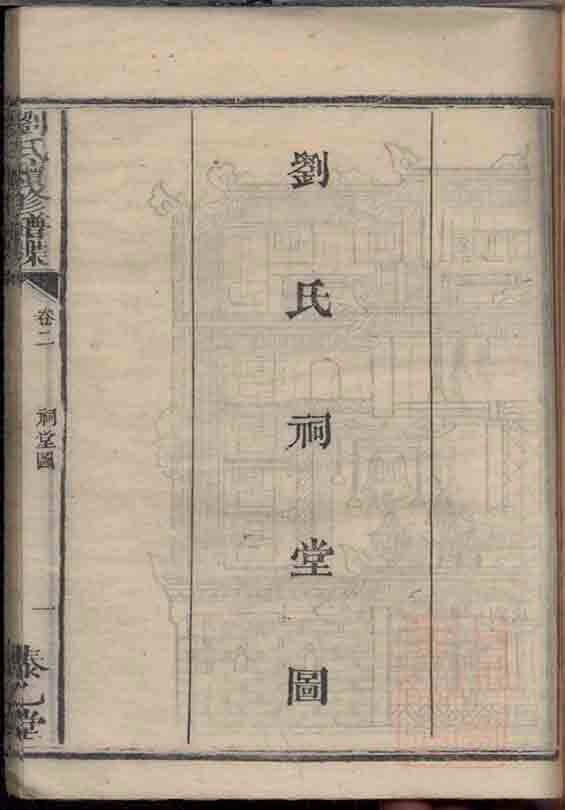 劉氏祠堂圖
劉氏
修譜牒
卷二
祠堂圖
一
堂